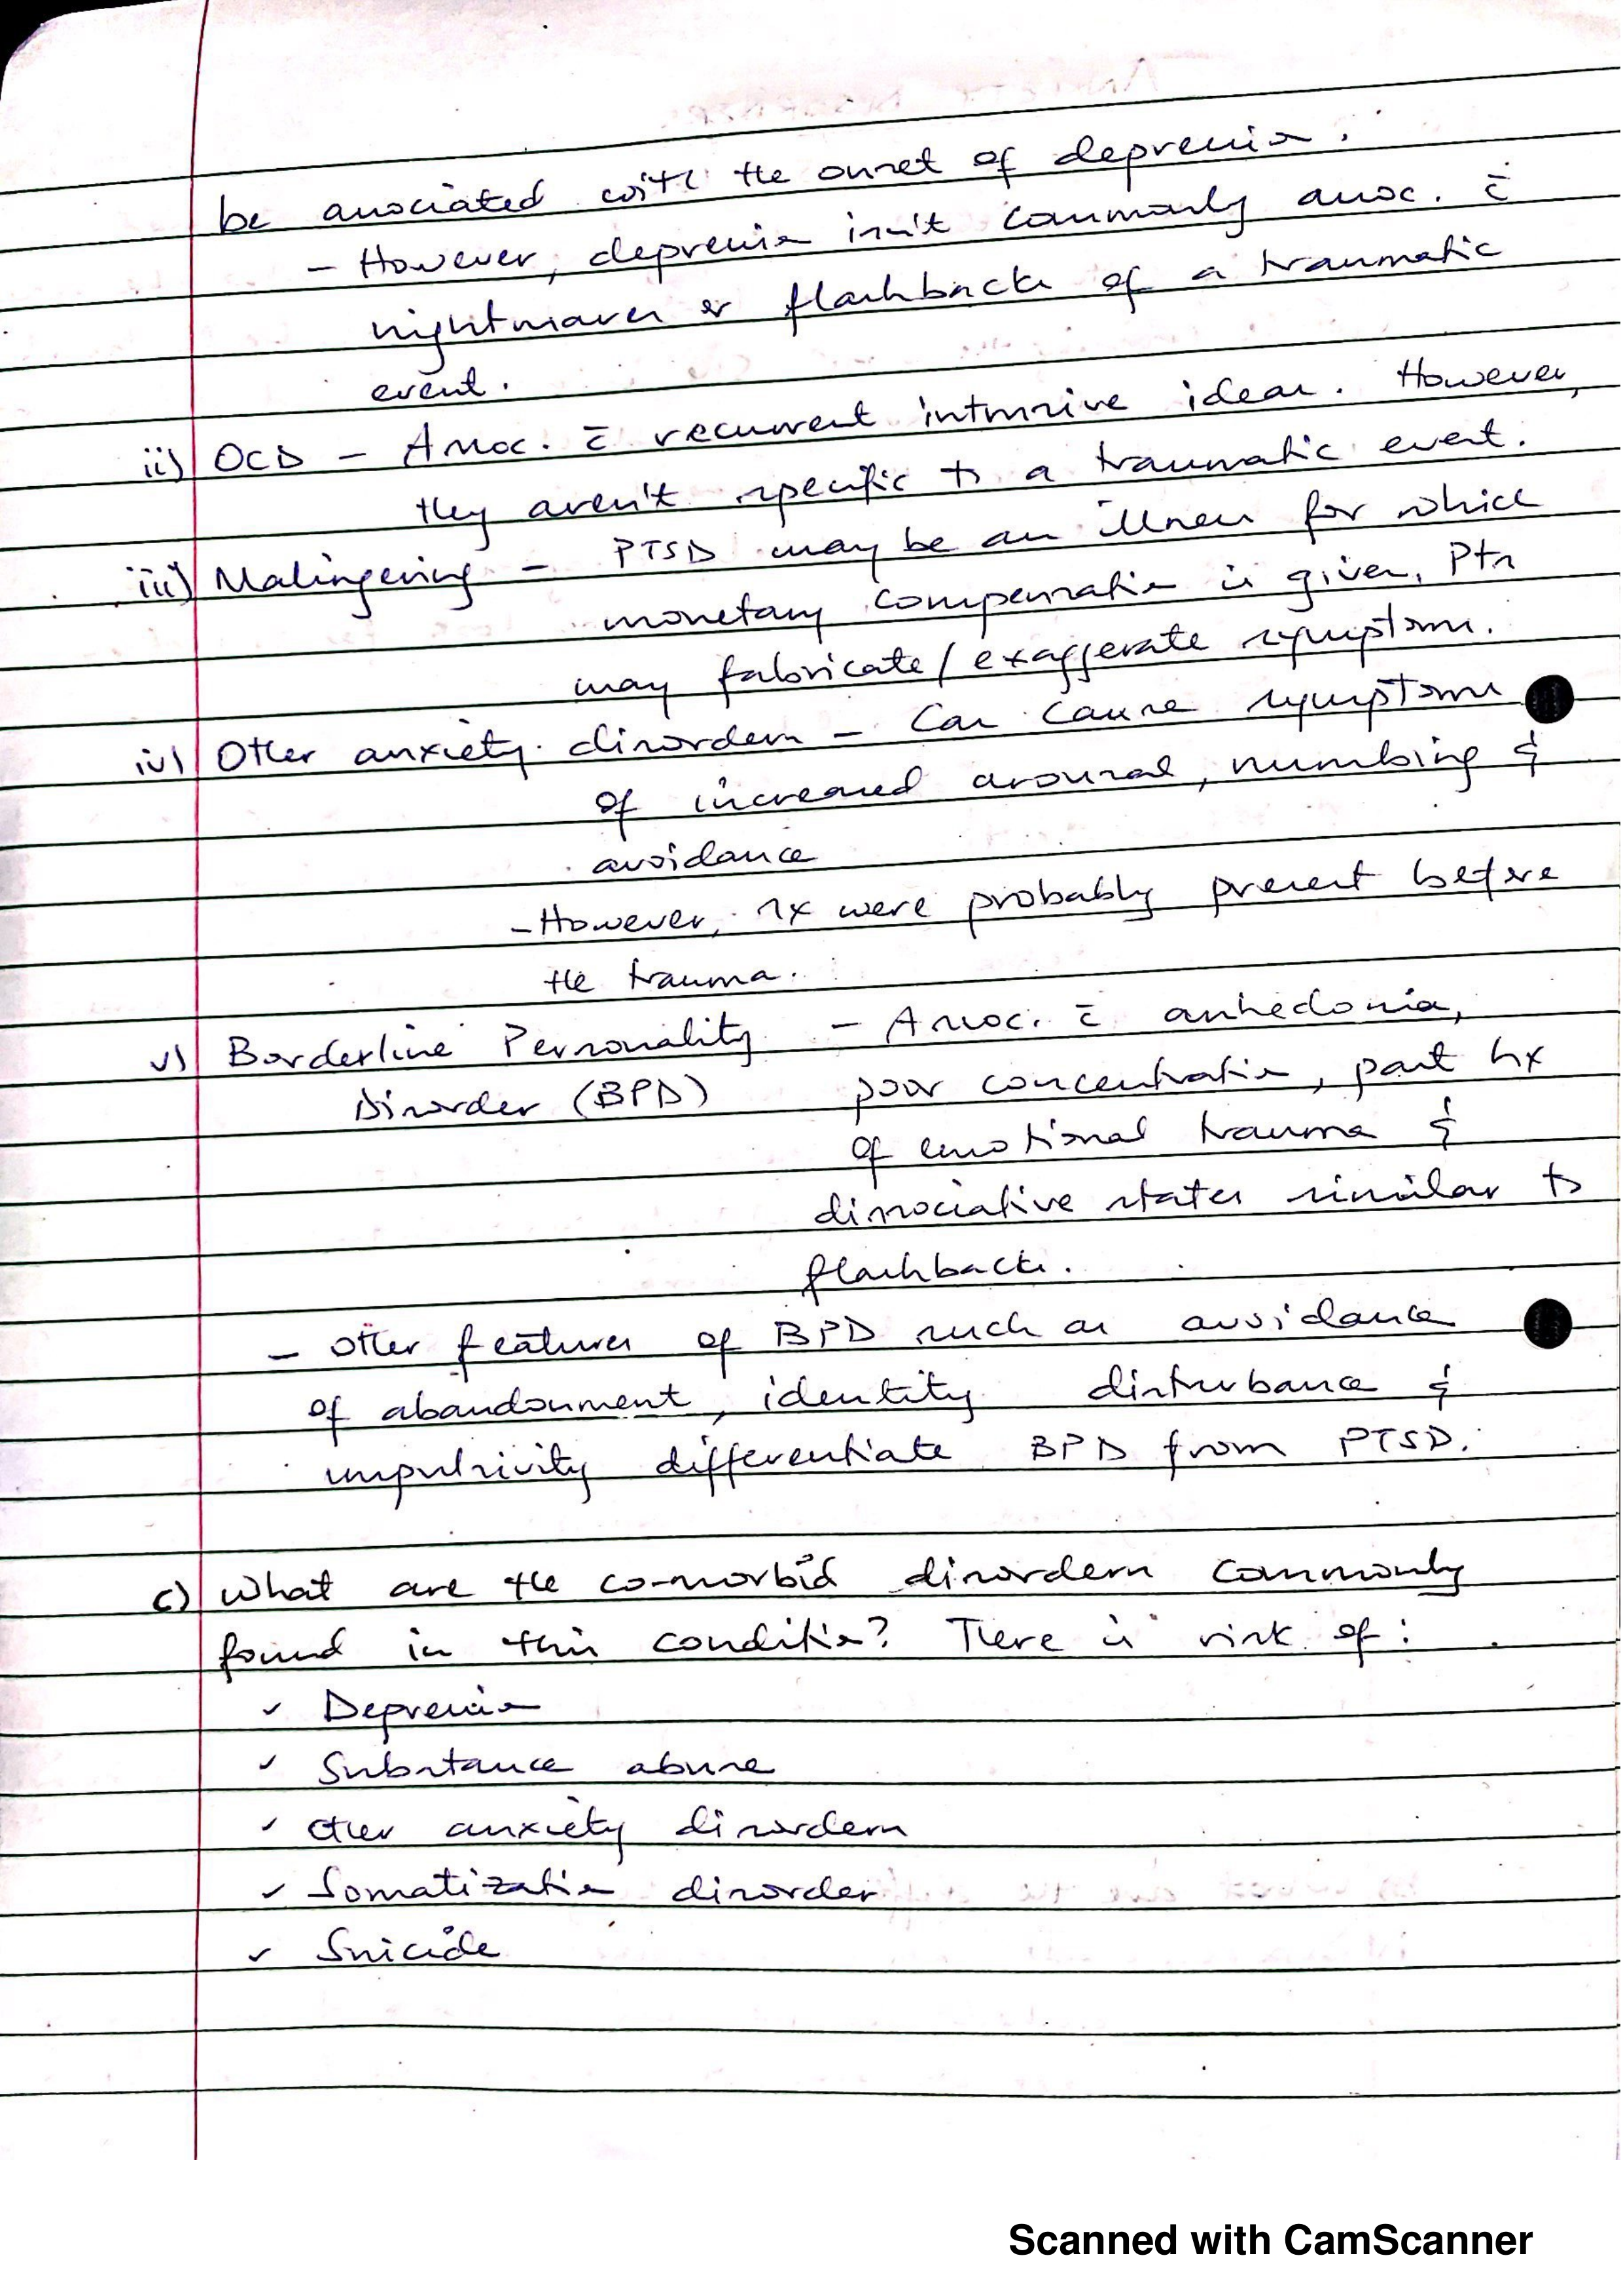 be associated with the onset of depression.
- However, depression isn't commonly assoc. c̄
nightmares or flashbacks of a traumatic
event.
ii) OCD - Assoc. c̄ recurrent intrusive ideas. However,
they aren't specific to a traumatic event.
iii) Malingering - PTSD may be an illness for which
monetary compensation is given, Pts
may fabricate/exaggerate symptoms.
iv) Other anxiety disorders - Can cause symptoms
of increased arousal, numbing &
avoidance
- However, sx were probably present before
the trauma.
v) Borderline Personality - Assoc. c̄ anhedonia,
Disorder (BPD) poor concentration, past hx
of emotional trauma &
dissociative states similar to
flashbacks.
- Other features of BPD such as avoidance
of abandonment, identity disturbance &
impulsivity differentiate BPD from PTSD.
c) What are the co-morbid disorders commonly
found in this condition? There is risk of:
✓ Depression
✓ Substance abuse
✓ Other anxiety disorders
✓ Somatization disorder
✓ Suicide
Scanned with CamScanner